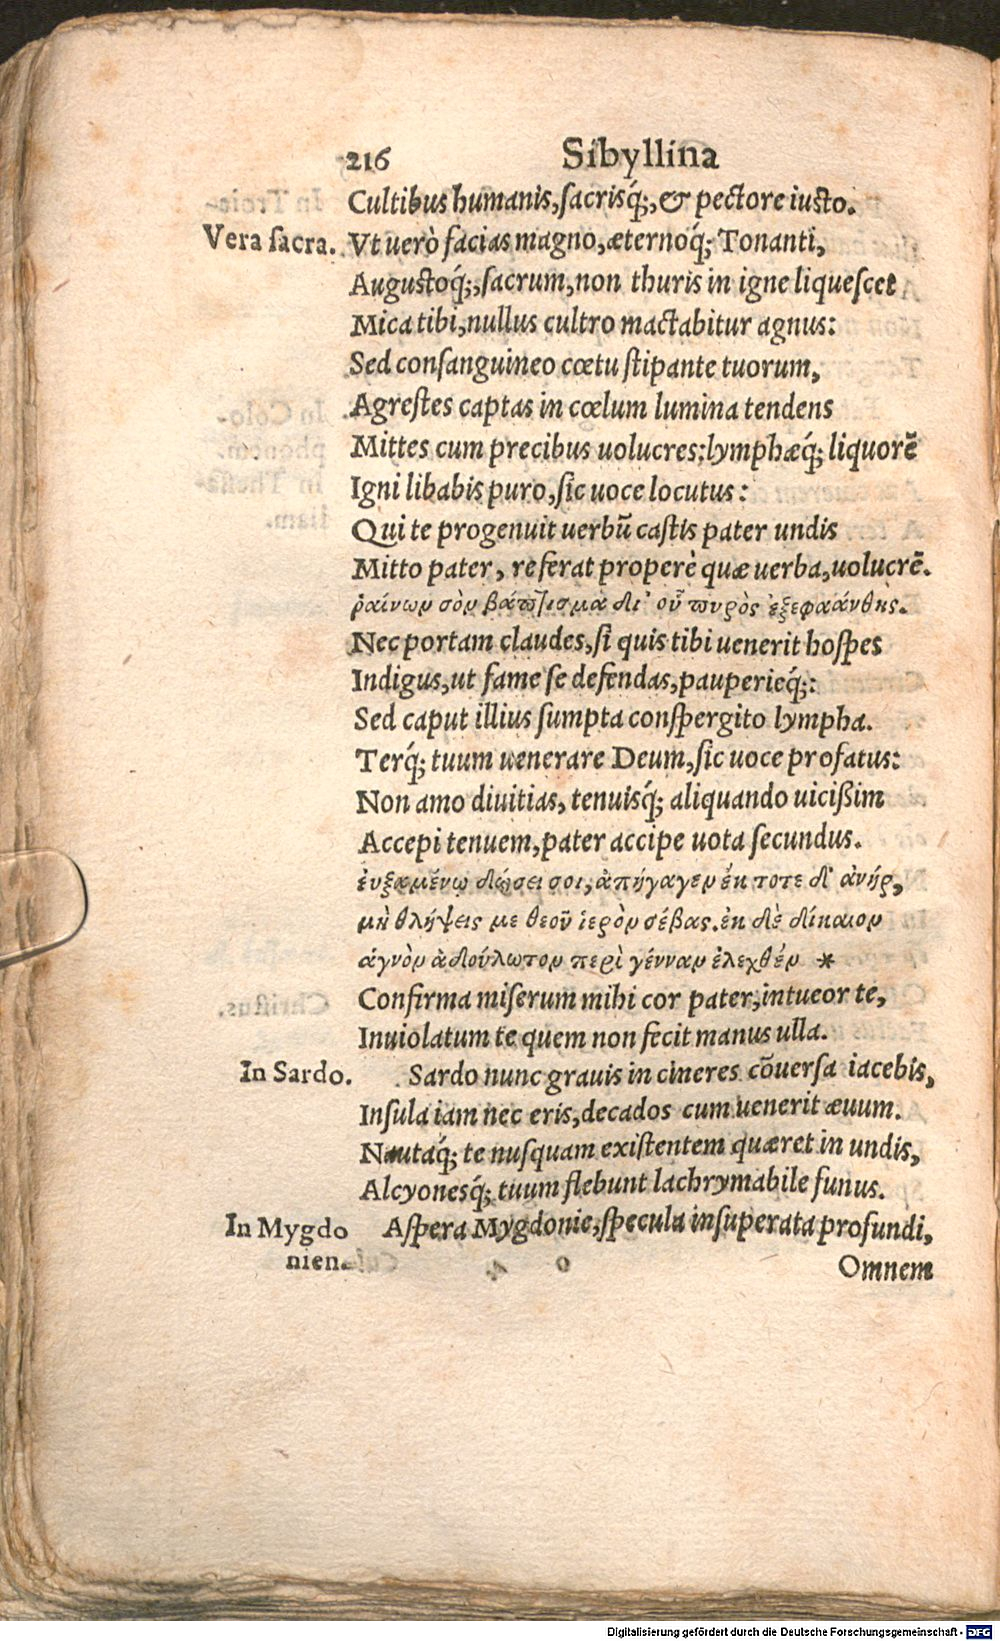 216 Sibyllina
Cultibus humanis, sacrisq́;, & pectore iusto.
Vera sacra. Vt uerò facias magno, æternoq́; Tonanti,
Augustoq́;, sacrum, non thuris in igne liquescet
Mica tibi, nullus cultro mactabitur agnus:
Sed consanguineo cœtu stipante tuorum,
Agrestes captas in cœlum lumina tendens
Mittes cum precibus uolucres: lymphæq́; liquorē
Igni libabis puro, sic uoce locutus:
Qui te progenuit uerbū castis pater undis
Mitto pater, referat properè quæ uerba, uolucrē.
ῥαίνων σὸν βάπτισμα δι' οὗ πυρὸς ἐξεφαάνθης.
Nec portam claudes, si quis tibi uenerit hospes
Indigus, ut fame se defendas, pauperieq́;:
Sed caput illius sumpta conspergito lympha.
Terq́; tuum uenerare Deum, sic uoce profatus:
Non amo diuitias, tenuisq́; aliquando uicißim
Accepi tenuem, pater accipe uota secundus.
ἐυξαμένῳ δώσει σοι, ἀπήγαγεν ἐκ τοτε δ' ἀνήρ,
μὴ θλήψεις με θεοῦ ἱερὸν σέβας. ἐκ δὲ δίκαιον
ἁγνὸν ἀδούλωτον περὶ γένναν ἐλεχθέν *
Confirma miserum mihi cor pater, intueor te,
Inuiolatum te quem non fecit manus ulla.
In Sardo. Sardo nunc grauis in cineres cōuersa iacebis,
Insula iam nec eris, decados cum uenerit æuum.
Nautaq́; te nusquam existentem quæret in undis,
Alcyonesq́; tuum flebunt lachrymabile funus.
In Mygdo Aspera Mygdonie, specula insuperata profundi,
nien. o 4 Omnem
Digitalisierung gefördert durch die Deutsche Forschungsgemeinschaft - DFG